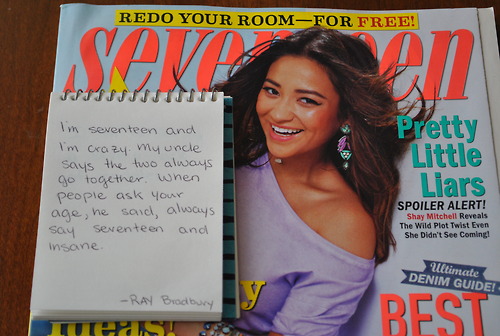 REDO YOUR ROOM—FOR FREE!
seventeen
I'm seventeen and
I'm crazy. My uncle
says the two always
go together. When
people ask your
age, he said, always
say seventeen and
insane.
-RAY Bradbury
Pretty
Little
Liars
SPOILER ALERT!
Shay Mitchell Reveals
The Wild Plot Twist Even
She Didn't See Coming!
Ultimate
DENIM GUIDE!
BEST
y
Ideas!